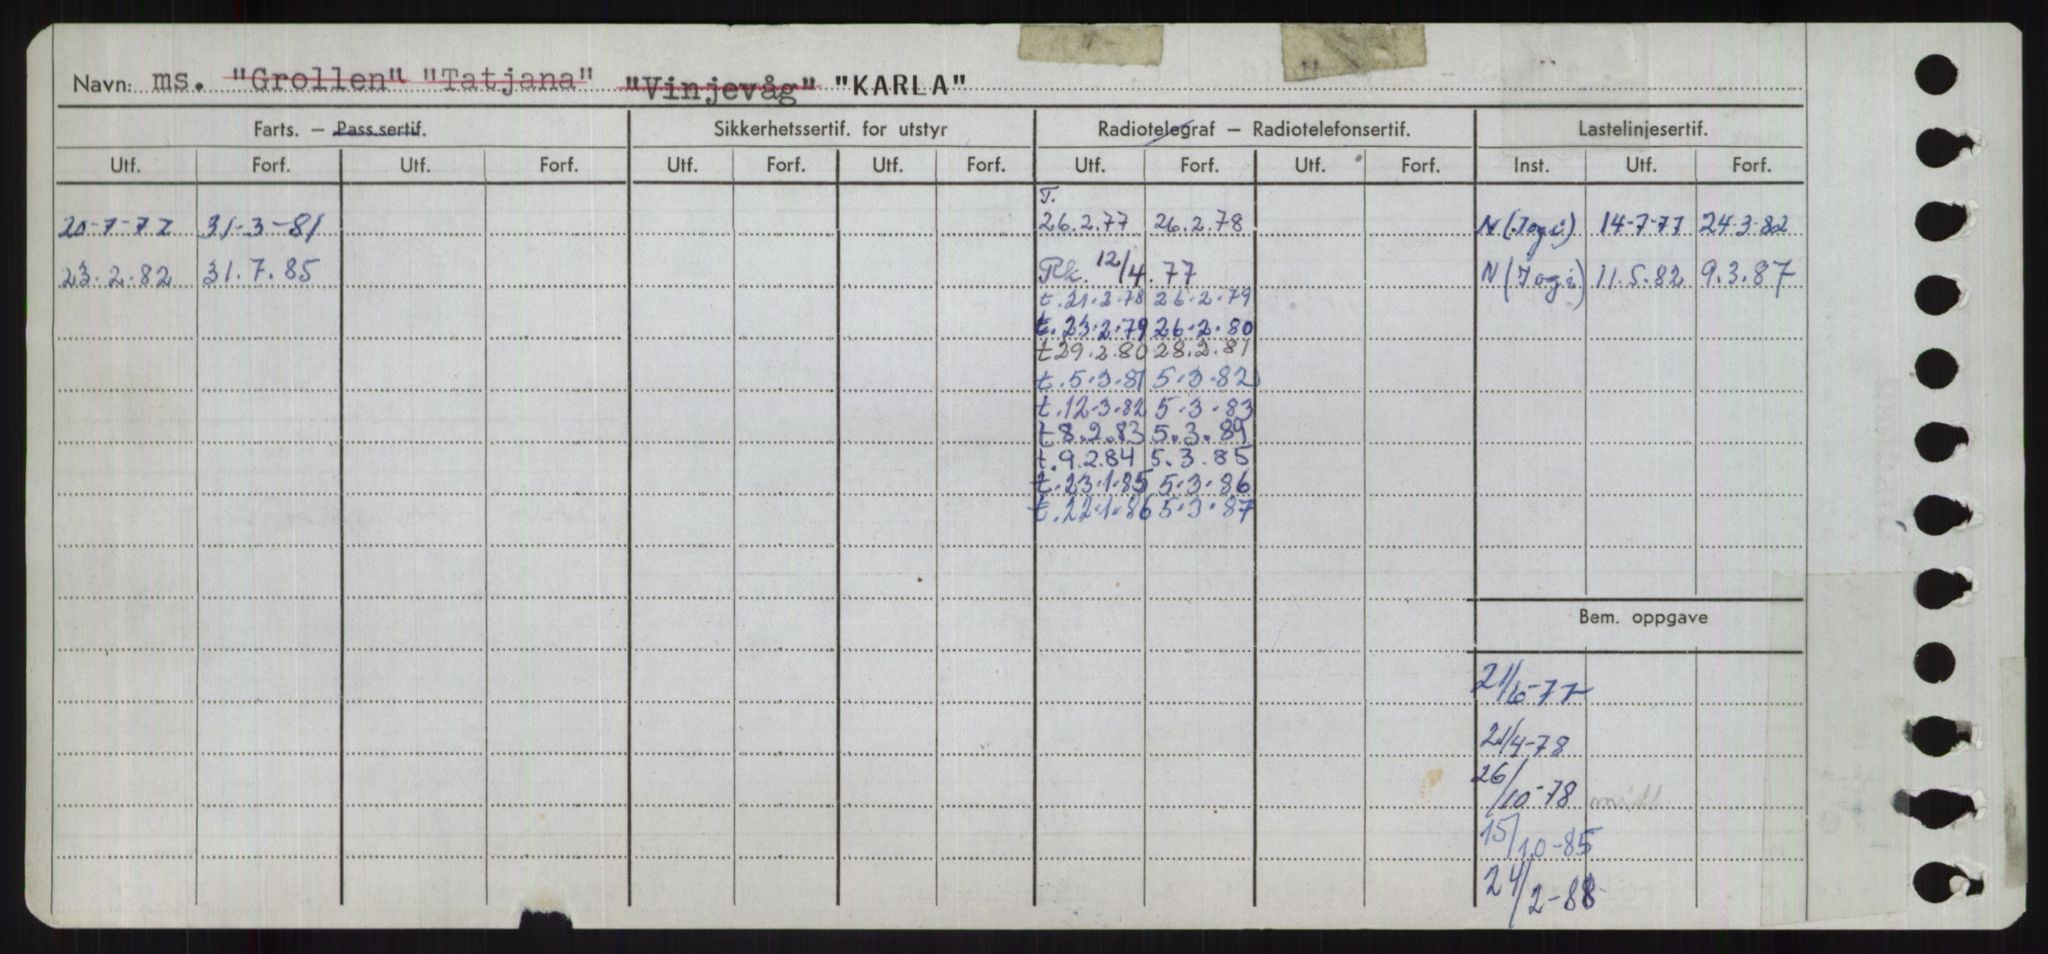 Navn: ms. "Grollen" "Tatjana" "Vinjevåg" "KARLA"
Farts. — Pass.sertif. Sikkerhetssertif. for utstyr Radiotelegraf — Radiotelefonsertif. Lastelinjesertif.
Utf. Forf. Utf. Forf. Utf. Forf. Utf. Forf. Utf. Forf. Utf. Forf. Inst. Utf. Forf.
T.
20-7-77 31-3-81 26.2.77 26.2.78 N (Jogi) 14-7-77 24-3-82
23.2.82 31.7.85 Rk. 12/4.77 N (Jogi) 11.5.82 9.3.87
t.21.2.78 26.2.79
t.23.2.79 26.2.80
t 29.2.80 28.2.81
t.5.3.81 5.3.82
t.12.3.82 5.3.83
t 8.2.83 5.3.84
t.9.2.84 5.3.85
t.23.1.85 5.3.86
t.22.1.86 5.3.87
Bem. oppgave
21/6-77
21/4-78
26/10-78
15/10-85
24/2-88